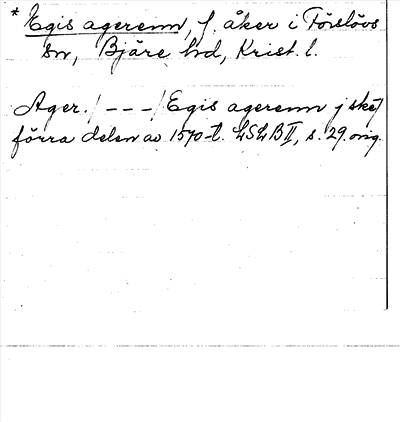 * Egis agerenn, f. åker i Förslövs
sn, Bjäre hd, Krist. l.
Ager. /---/ Egis agerenn j skef
förra delen av 1570-t. LSLB II, s. 29. orig.